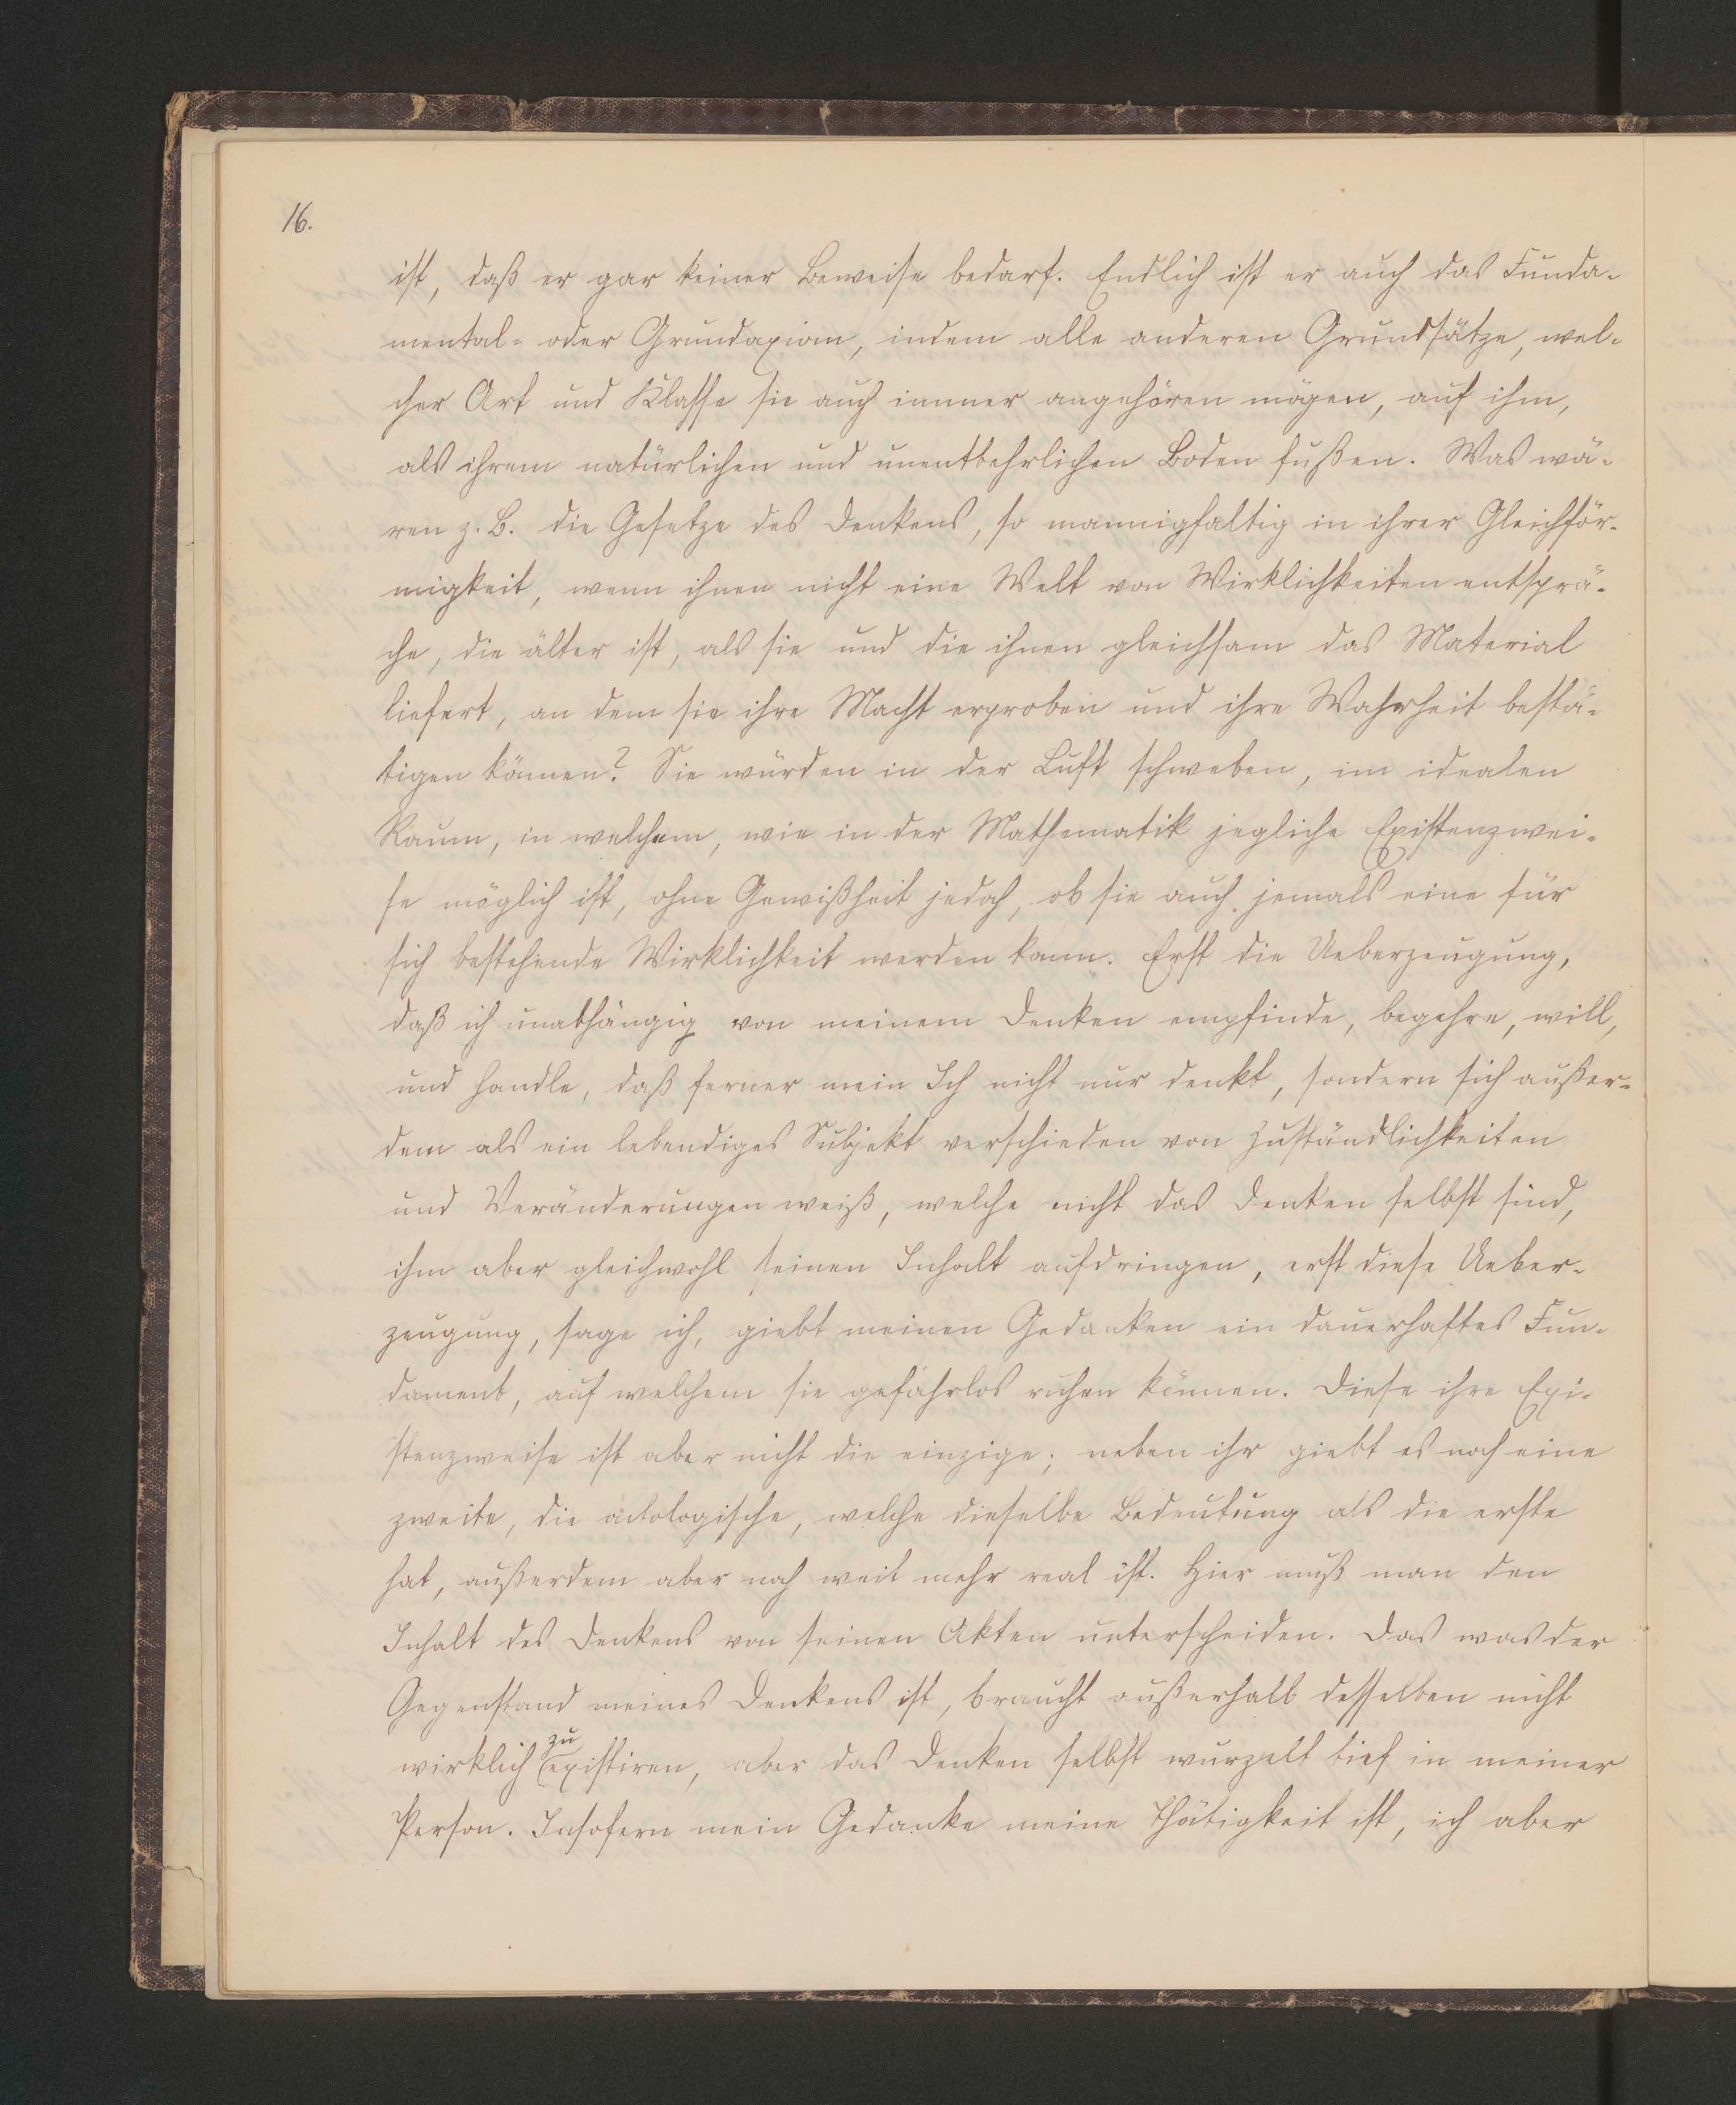 16.
ist, daß er gar keiner Beweise bedarf. Endlich ist er auch das Funda-
mental- oder Grundaxiom, indem alle anderen Grundsätze, wel-
cher Art und Klasse sie auch immer angehören mögen, auf ihm,
als ihrem natürlichen und unentbehrlichen Boden fußen. Was wä-
ren z. B. die Gesetze des Denkens, so mannigfaltig in ihrer Gleichför-
migkeit, wenn ihnen nicht eine Welt von Wirklichkeiten entsprä-
che, die älter ist, als sie und die ihnen gleichsam das Material
liefert, an dem sie ihre Macht erproben und ihre Wahrheit bestä-
tigen können? Sie würden in der Luft schweben, im idealen
Raum, in welchem, wie in der Mathematik jegliche Existenzwei-
se möglich ist, ohne Gewißheit jedoch, ob sie auch jemals eine für
sich bestehende Wirklichkeit werden kann. Erst die Ueberzeugung,
daß ich unabhängig von meinem Denken empfinde, begehre, will,
und handle, daß ferner mein Ich nicht nur denkt, sondern sich außer-
dem als ein lebendiges Subjekt verschieden von Zuständlichkeiten
und Veränderungen weiß, welche nicht das Denken selbst sind,
ihm aber gleichwohl seinen Inhalt aufdringen, erst diese Ueber-
zeugung, sage ich, giebt meinen Gedanken ein dauerhaftes Fun-
dament, auf welchem sie gefahrlos ruhen können. Diese ihre Exi-
stenzweise ist aber nicht die einzige; neben ihr giebt es noch eine
zweite, die ätologische, welche dieselbe Bedeutung als die erste
hat, außerdem aber noch weit mehr real ist. Hier muß man den
Inhalt des Denkens von seinen Akten unterscheiden. Das was der
Gegenstand meines Denkens ist, braucht außerhalb desselben nicht
wirklich zu existiren, aber das Denken selbst wurzelt tief in meiner
Person. Insofern mein Gedanke meine Thätigkeit ist, ich aber